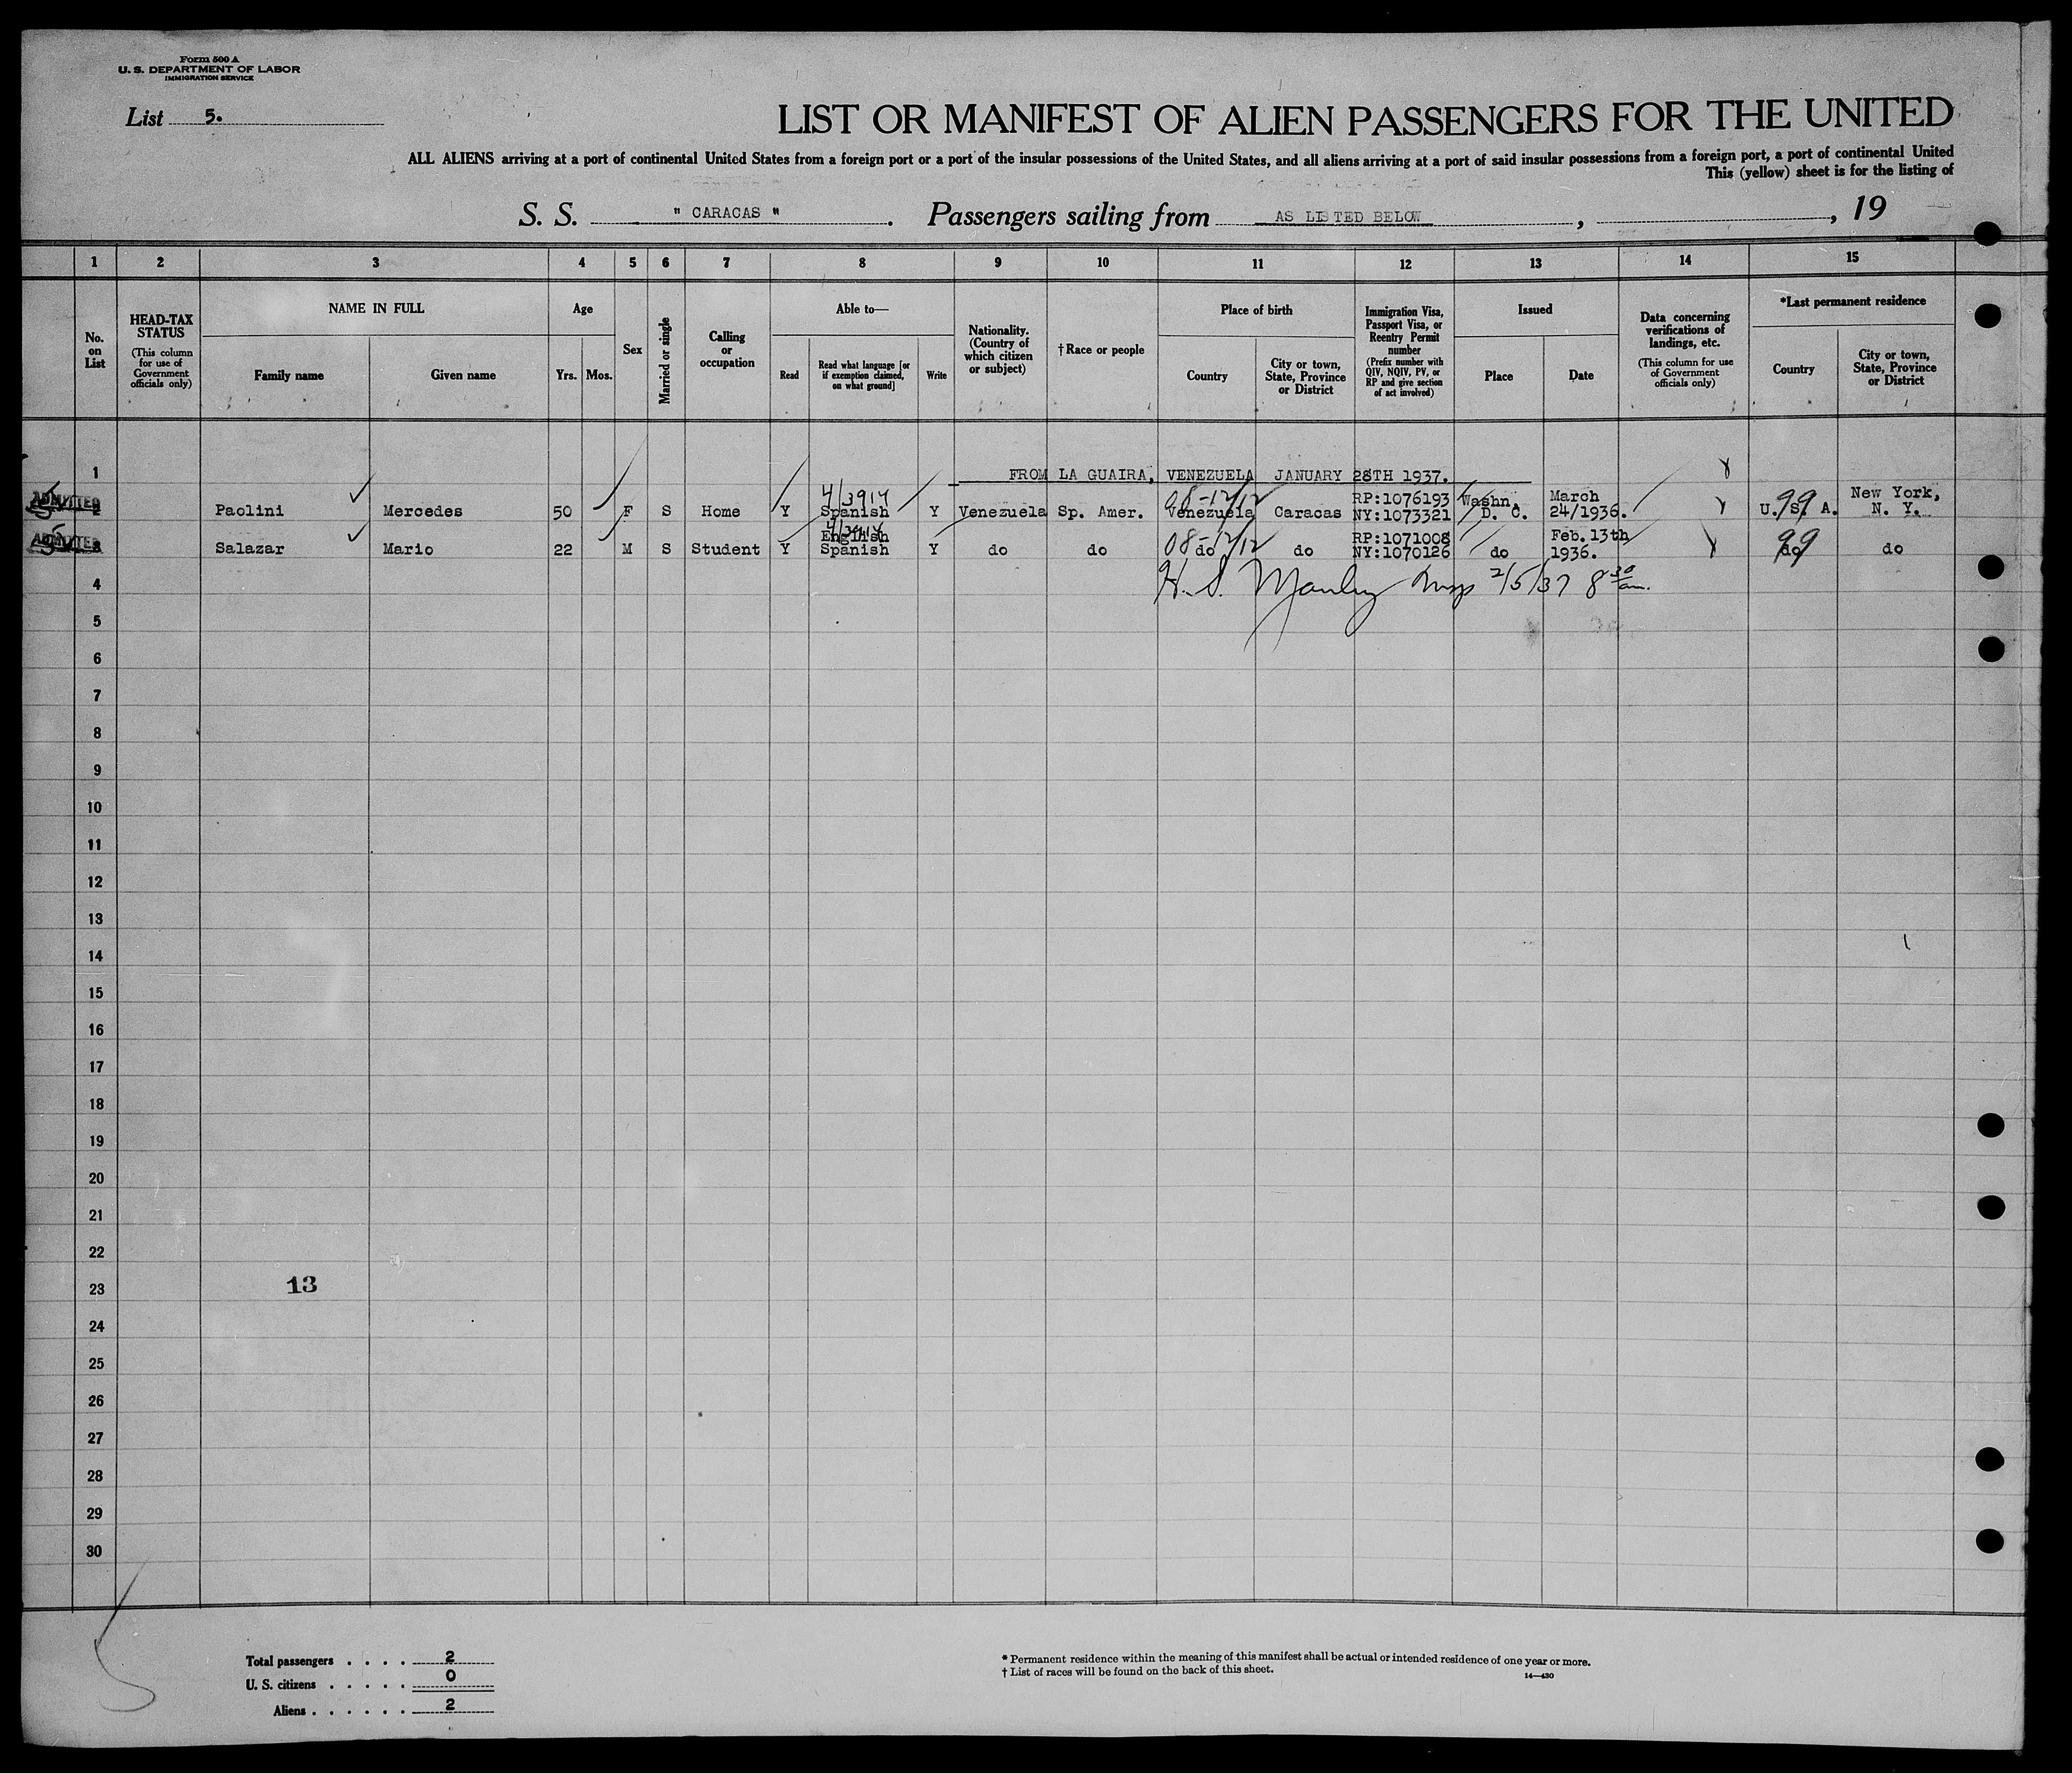 Form 500 A
U. S. DEPARTMENT OF LABOR
IMMIGRATION SERVICE
List 5.
LIST OR MANIFEST OF ALIEN PASSENGERS FOR THE UNITED
ALL ALIENS arriving at a port of continental United States from a foreign port or a port of the insular possessions of the United States, and all aliens arriving at a port of said insular possessions from a foreign port, a port of continental United
This (yellow) sheet is for the listing of
S. S. " CARACAS ". Passengers sailing from AS LISTED BELOW , , 19
1 2 3 4 5 6 7 8 9 10 11 12 13 14 15
No. on List
HEAD-TAX STATUS
(This column for use of Government officials only)
NAME IN FULL
Family name
Given name
Age
Yrs.
Mos.
Sex
Married or single
Calling or occupation
Able to—
Read
Read what language [or if exemption claimed, on what ground]
Write
Nationality. (Country of which citizen or subject)
†Race or people
Place of birth
Country
City or town, State, Province or District
Immigration Visa, Passport Visa, or Reentry Permit number
(Prefix number with QIV, NQIV, PV, or RP and give section of act involved)
Issued
Place
Date
Data concerning verifications of landings, etc.
(This column for use of Government officials only)
*Last permanent residence
Country
City or town, State, Province or District
1 FROM LA GUAIRA, VENEZUELA JANUARY 28TH 1937.
ADMITTED 2 Paolini Mercedes 50 F S Home Y 4/3914 Spanish English Y Venezuela Sp. Amer. 08-12/12 Venezuela Caracas RP:1076193 NY:1073321 Washn. D. C. March 24/1936. U. S. A. 99 New York, N. Y.
ADMITTED 3 Salazar Mario 22 M S Student Y 4/3914 Spanish Y do do 08-12/12 do do RP:1071008 NY:1070126 do Feb. 13th 1936. do 99 do
4 H. S. Manley Insp 2/5/37 8 30 am.
5
6
7
8
9
10
11
12
13
14
15
16
17
18
19
20
21
22
23
13
24
25
26
27
28
29
30
Total passengers . . . . 2
U. S. citizens . . . . . 0
Aliens . . . . . . 2
* Permanent residence within the meaning of this manifest shall be actual or intended residence of one year or more.
† List of races will be found on the back of this sheet.
14—430